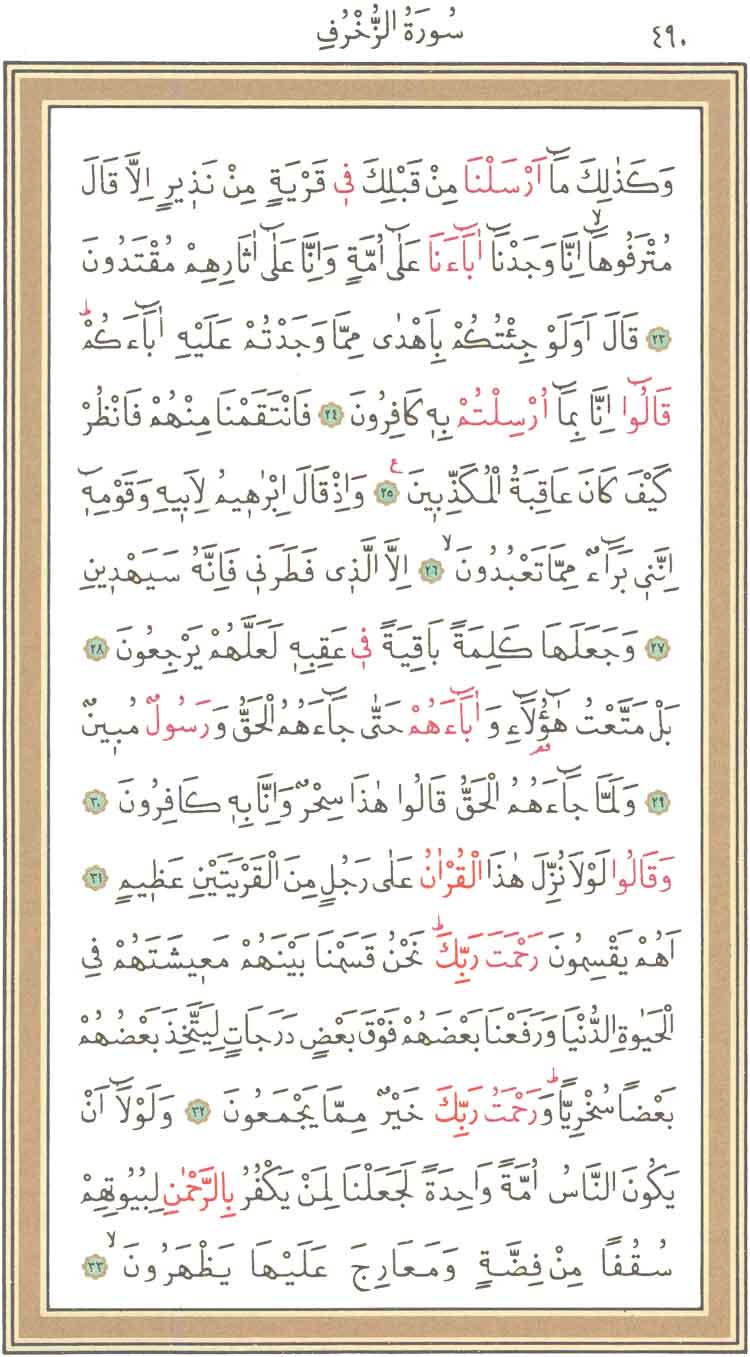 سُورَةُ الزُّخْرُفِ ٤٩٠
وَكَذٰلِكَ مَٓا اَرْسَلْنَا مِنْ قَبْلِكَ فٖى قَرْيَةٍ مِنْ نَذٖيرٍ اِلَّا قَالَ
مُتْرَفُوهَٓاۙ اِنَّا وَجَدْنَٓا اٰبَٓاءَنَا عَلٰٓى اُمَّةٍ وَاِنَّا عَلٰٓى اٰثَارِهِمْ مُقْتَدُونَ
٢٣ قَالَ اَوَلَوْ جِئْتُكُمْ بِاَهْدٰى مِمَّا وَجَدْتُمْ عَلَيْهِ اٰبَٓاءَكُمْؕ
قَالُٓوا اِنَّا بِمَٓا اُرْسِلْتُمْ بِهٖ كَافِرُونَ ٢٤ فَانْتَقَمْنَا مِنْهُمْ فَانْظُرْ
كَيْفَ كَانَ عَاقِبَةُ الْمُكَذِّبٖينَ ع ٢٥ وَاِذْ قَالَ اِبْرٰهٖيمُ لِاَبٖيهِ وَقَوْمِهٖٓ
اِنَّنٖى بَرَٓاءٌ مِمَّا تَعْبُدُونَۙ ٢٦ اِلَّا الَّذٖى فَطَرَنٖى فَاِنَّهُ سَيَهْدٖينِ
٢٧ وَجَعَلَهَا كَلِمَةً بَاقِيَةً فٖى عَقِبِهٖ لَعَلَّهُمْ يَرْجِعُونَ ٢٨
بَلْ مَتَّعْتُ هٰٓؤُ۬لَٓاءِ وَاٰبَٓاءَهُمْ حَتّٰى جَٓاءَهُمُ الْحَقُّ وَرَسُولٌ مُبٖينٌ
٢٩ وَلَمَّا جَٓاءَهُمُ الْحَقُّ قَالُوا هٰذَا سِحْرٌ وَاِنَّا بِهٖ كَافِرُونَ ٣٠
وَقَالُوا لَوْلَا نُزِّلَ هٰذَا الْقُرْاٰنُ عَلٰى رَجُلٍ مِنَ الْقَرْيَتَيْنِ عَظٖيمٍ ٣١
اَهُمْ يَقْسِمُونَ رَحْمَتَ رَبِّكَؕ نَحْنُ قَسَمْنَا بَيْنَهُمْ مَعٖيشَتَهُمْ فِى
الْحَيٰوةِ الدُّنْيَا وَرَفَعْنَا بَعْضَهُمْ فَوْقَ بَعْضٍ دَرَجَاتٍ لِيَتَّخِذَ بَعْضُهُمْ
بَعْضًا سُخْرِيًّاؕ وَرَحْمَتُ رَبِّكَ خَيْرٌ مِمَّا يَجْمَعُونَ ٣٢ وَلَوْلَٓا اَنْ
يَكُونَ النَّاسُ اُمَّةً وَاحِدَةً لَجَعَلْنَا لِمَنْ يَكْفُرُ بِالرَّحْمٰنِ لِبُيُوتِهِمْ
سُقُفًا مِنْ فِضَّةٍ وَمَعَارِجَ عَلَيْهَا يَظْهَرُونَۙ ٣٣